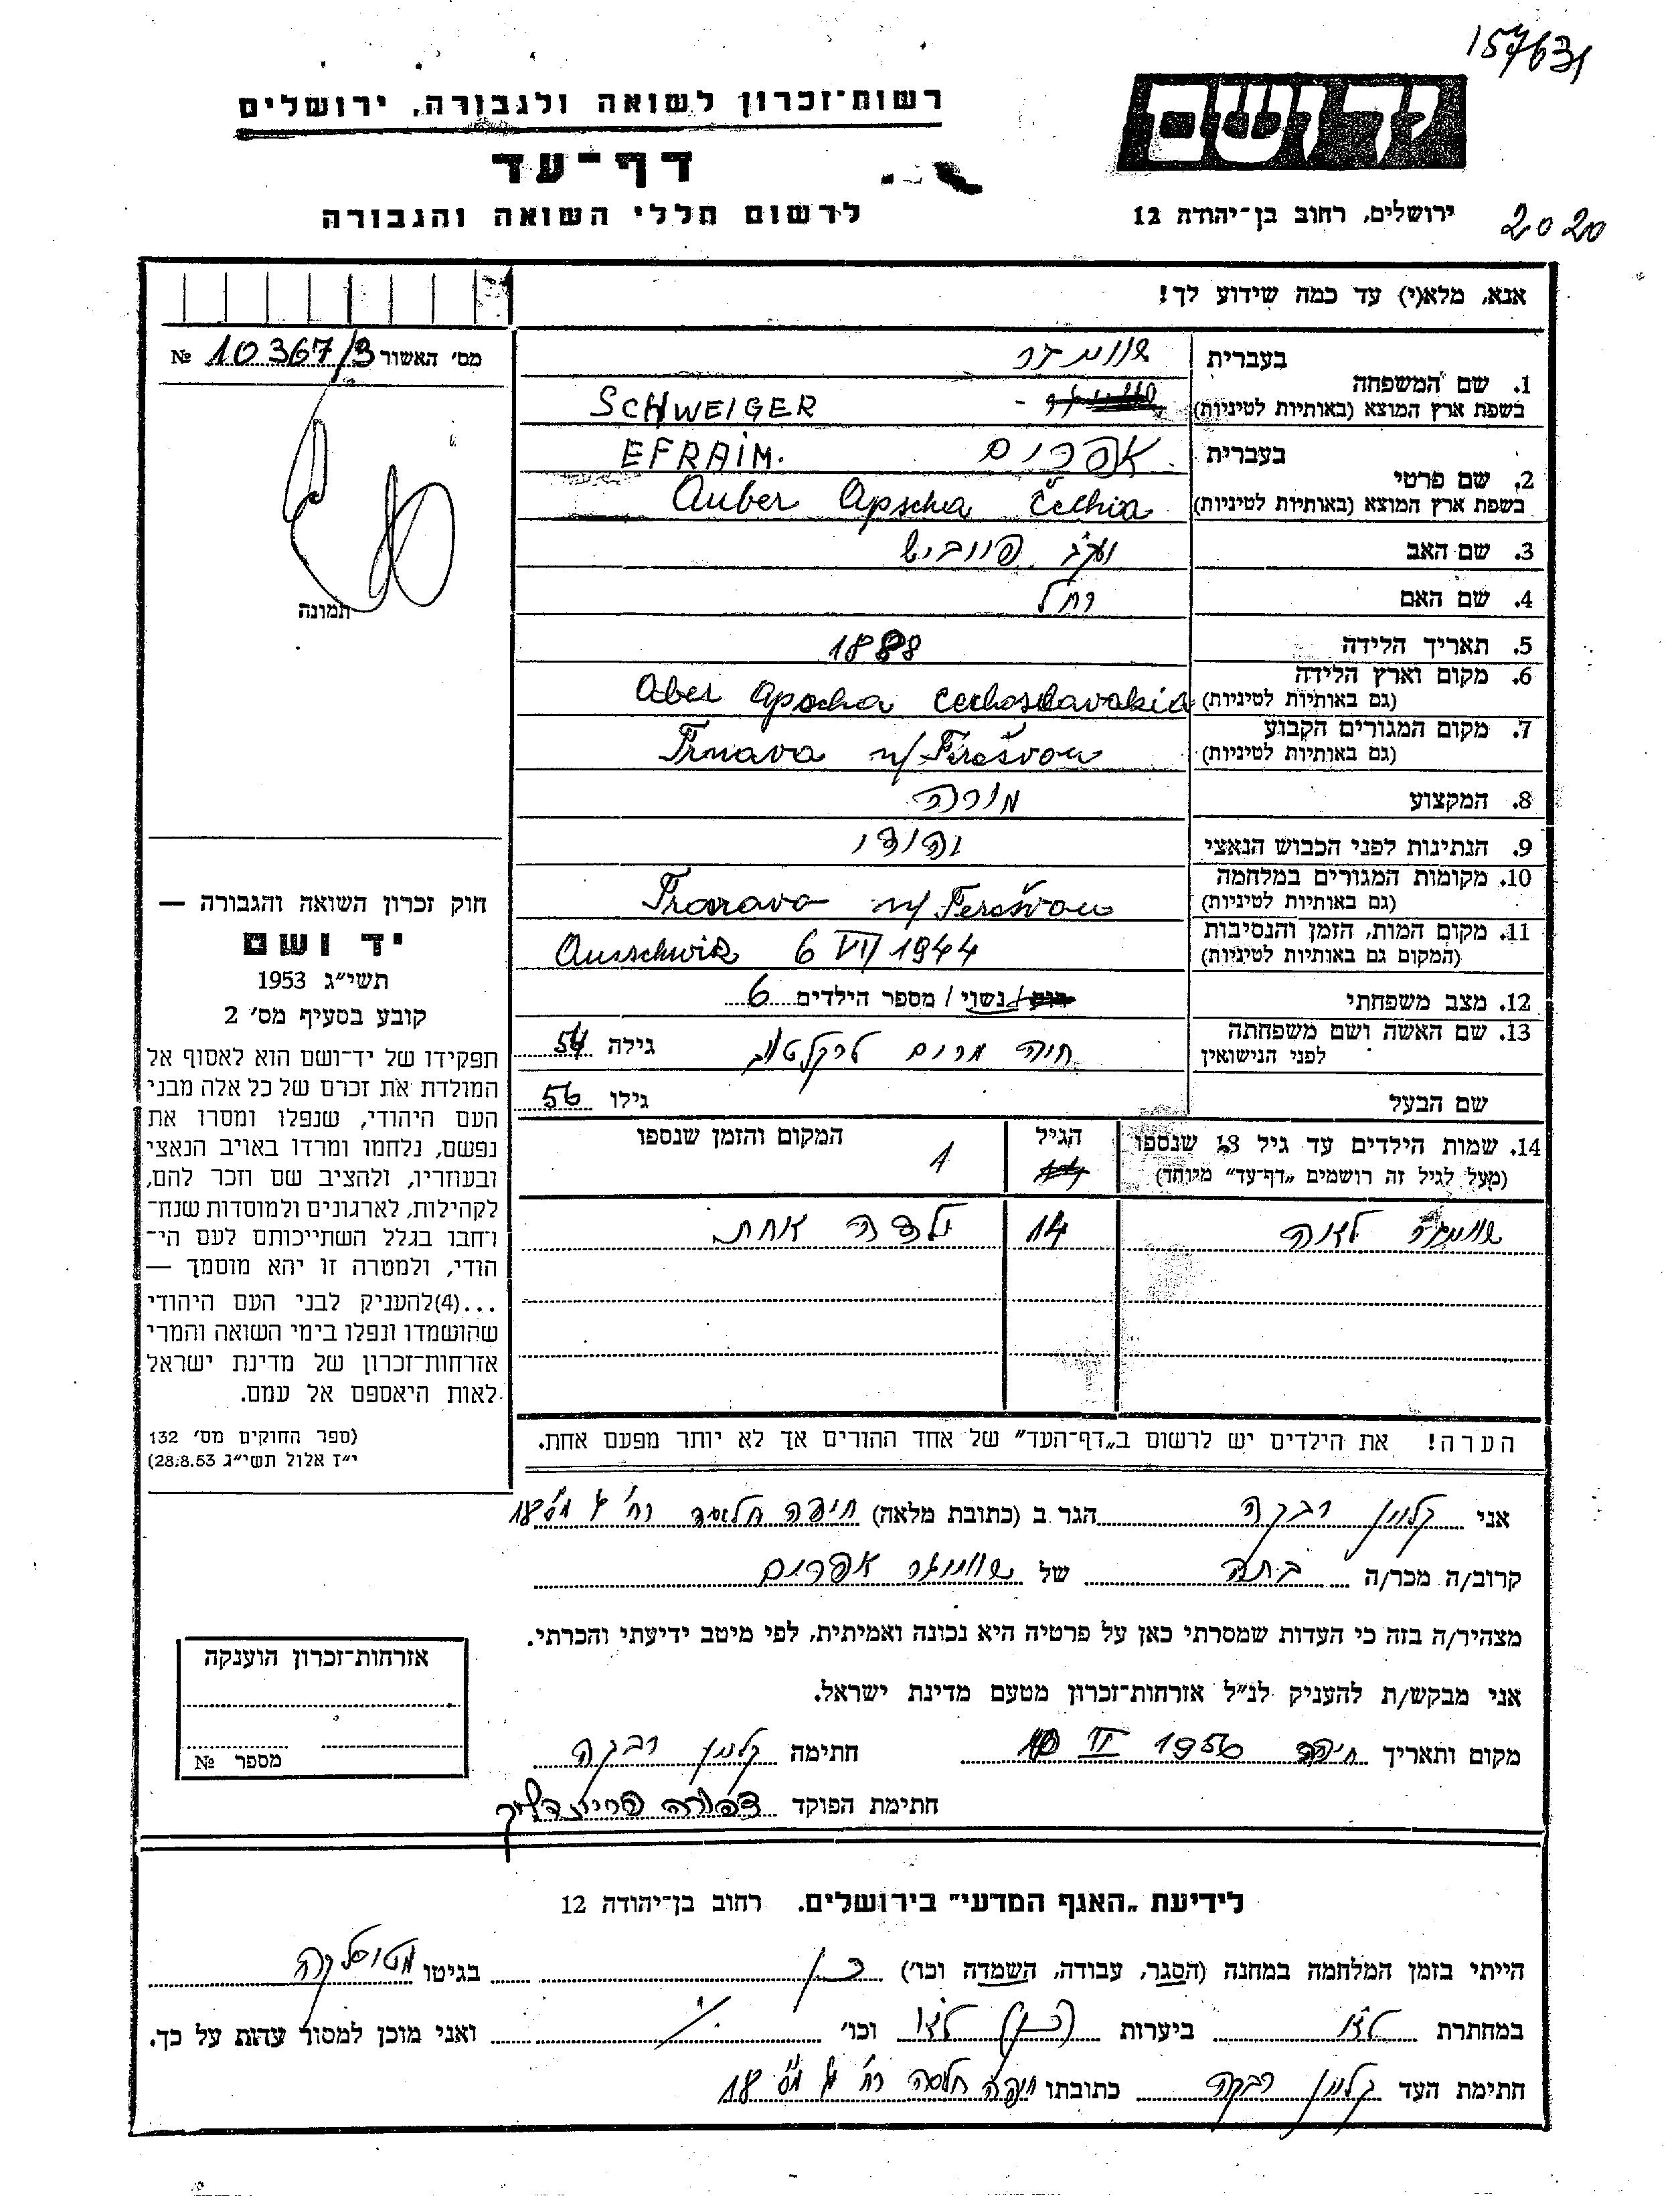 157631
רשות־זכרון לשואה ולגבורה, ירושלים
יד ושם
דף־עד
לרשום חללי השואה והגבורה
ירושלים, רחוב בן־יהודה 12
2020
אנא, מלא(י) עד כמה שידוע לך!
מס׳ האשור 10367/3 №
תמונה
1. שם המשפחה
בעברית
בשפת ארץ המוצא (באותיות לטיניות) SCHWEIGER
2. שם פרטי
בעברית אפרים EFRAIM.
בשפת ארץ המוצא (באותיות לטיניות) Auber Apscha Čechia
3. שם האב
4. שם האם רחל
5. תאריך הלידה 1888
6. מקום וארץ הלידה
(גם באותיות לטיניות) Aber Apscha Cechoslavakia
7. מקום המגורים הקבוע
(גם באותיות לטיניות) Trnava n/Terešvou
8. המקצוע מורה
9. הנתינות לפני הכבוש הנאצי יהודי
10. מקומות המגורים במלחמה
(גם באותיות לטיניות) Trnava n/Terešvou
11. מקום המות, הזמן והנסיבות
(המקום גם באותיות לטיניות) Ausschwiz 6 VII 1944
12. מצב משפחתי רווק / נשוי / מספר הילדים 6
13. שם האשה ושם משפחתה
לפני הנישואין חיה מרים גילה 54
שם הבעל גילו 56
14. שמות הילדים עד גיל 18 שנספו הגיל המקום והזמן שנספו
(מעל לגיל זה רושמים „דף־עד״ מיוחד) 1
14 ילדה אחת
הערה! את הילדים יש לרשום ב„דף־העד״ של אחד ההורים אך לא יותר מפעם אחת.
חוק זכרון השואה והגבורה —
יד ושם
תשי״ג 1953
קובע בסעיף מס׳ 2
תפקידו של יד־ושם הוא לאסוף אל
המולדת את זכרם של כל אלה מבני
העם היהודי, שנפלו ומסרו את
נפשם, נלחמו ומרדו באויב הנאצי
ובעוזריו, ולהציב שם וזכר להם,
לקהילות, לארגונים ולמוסדות שנח־
רבו בגלל השתייכותם לעם הי־
הודי, ולמטרה זו יהא מוסמך —
...(4)להעניק לבני העם היהודי
שהושמדו ונפלו בימי השואה והמרי
אזרחות־זכרון של מדינת ישראל
לאות היאספם אל עמם.
(ספר החוקים מס׳ 132
י״ז אלול תשי״ג 28.8.53)
אני קלויין רבקה הגר ב (כתובת מלאה) חיפה חליסה רח׳ מס׳ 18
קרוב/ה מכר/ה בתה של שווייגר אפרים
מצהיר/ה בזה כי העדות שמסרתי כאן על פרטיה היא נכונה ואמיתית, לפי מיטב ידיעתי והכרתי.
אני מבקש/ת להעניק לנ״ל אזרחות־זכרון מטעם מדינת ישראל.
מקום ותאריך חיפה 10 VI 1956 חתימה קלויין רבקה
חתימת הפוקד צפורה
אזרחות־זכרון הוענקה
מספר №
לידיעת „האגף המדעי״ בירושלים. רחוב בן־יהודה 12
הייתי בזמן המלחמה במחנה (הסגר, עבודה, השמדה וכו׳) כן בגיטו
במחתרת ביערות וכו׳ ואני מוכן למסור עדות על כך.
חתימת העד קלויין רבקה כתובתו חיפה חליסה רח׳ מס׳ 18